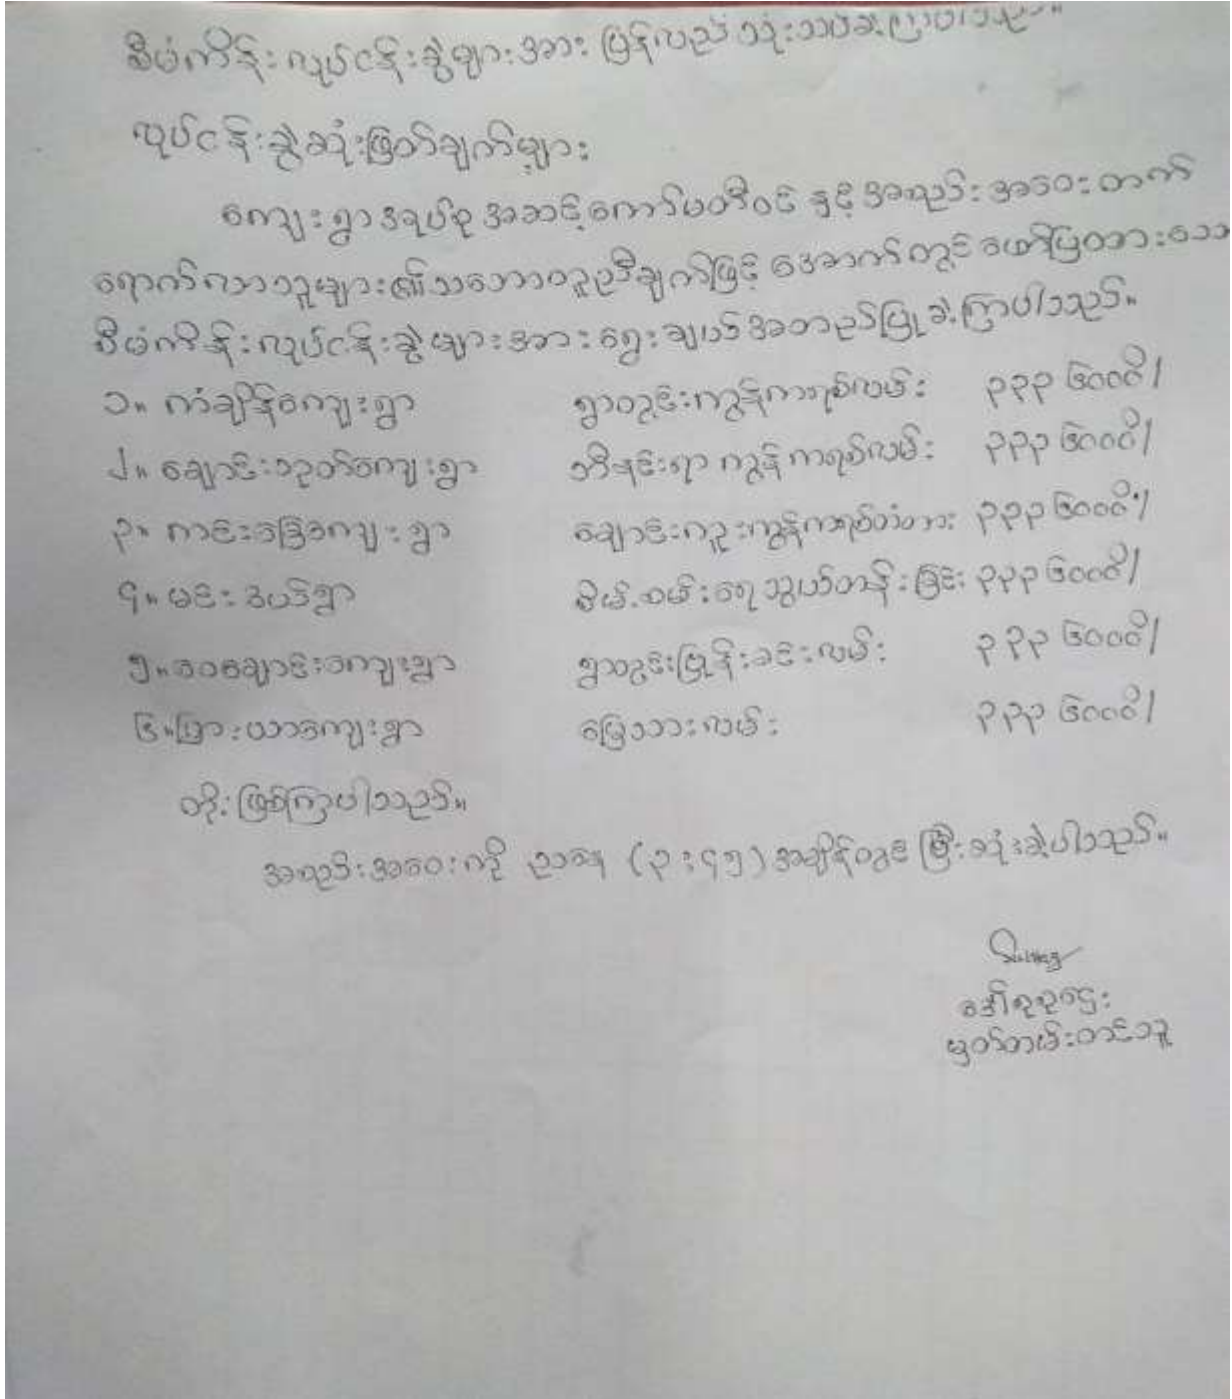 စီမံကိန်းလုပ်ငန်းခွဲများအား ပြန်လည်သုံးသပ်ခဲ့ကြပါသည်။
လုပ်ငန်းခွဲဆုံးဖြတ်ချက်များ
ကျေးရွာအုပ်စုအဆင့်ကော်မတီဝင်နှင့် အစည်းအဝေးတက်
ရောက်လာသူများ၏သဘောတူညီချက်ဖြင့် အောက်တွင်ဖော်ပြထားသော
စီမံကိန်းလုပ်ငန်းခွဲများအား ရွေးချယ်အတည်ပြုခဲ့ကြပါသည်။
၁။ ကံချိန်ကျေးရွာ ရွာတွင်းကွန်ကရစ်လမ်း ၃၃၃၆၀၀၀ိ/
၂။ ချောင်းညွတ်ကျေးရွာ ဘီနင်းရာကွန်ကရစ်လမ်း ၃၃၃၆၀၀၀ိ/
၃။ ကင်းခြေကျေးရွာ ချောင်းကူးကွန်ကရစ်တံတား ၃၃၃၆၀၀၀ိ/
၄။ မင်းအယ်ရွာ စိမ့်စမ်းရေသွယ်တန်းခြင်း ၃၃၃၆၀၀၀ိ/
၅။ ဝေချောင်းကျေးရွာ ရွာတွင်းပြုန်းခင်းလမ်း ၃၃၃၆၀၀၀ိ/
၆။ ပြားယာကျေးရွာ မြေသားလမ်း ၃၃၃၆၀၀၀ိ/
တို့ဖြစ်ကြပါသည်။
အစည်းအဝေးကို ညနေ (၃:၄၅) အချိန်တွင်ပြီးဆုံးခဲ့ပါသည်။
ဒေါ်စုစုဌေး
မှတ်တမ်းတင်သူ